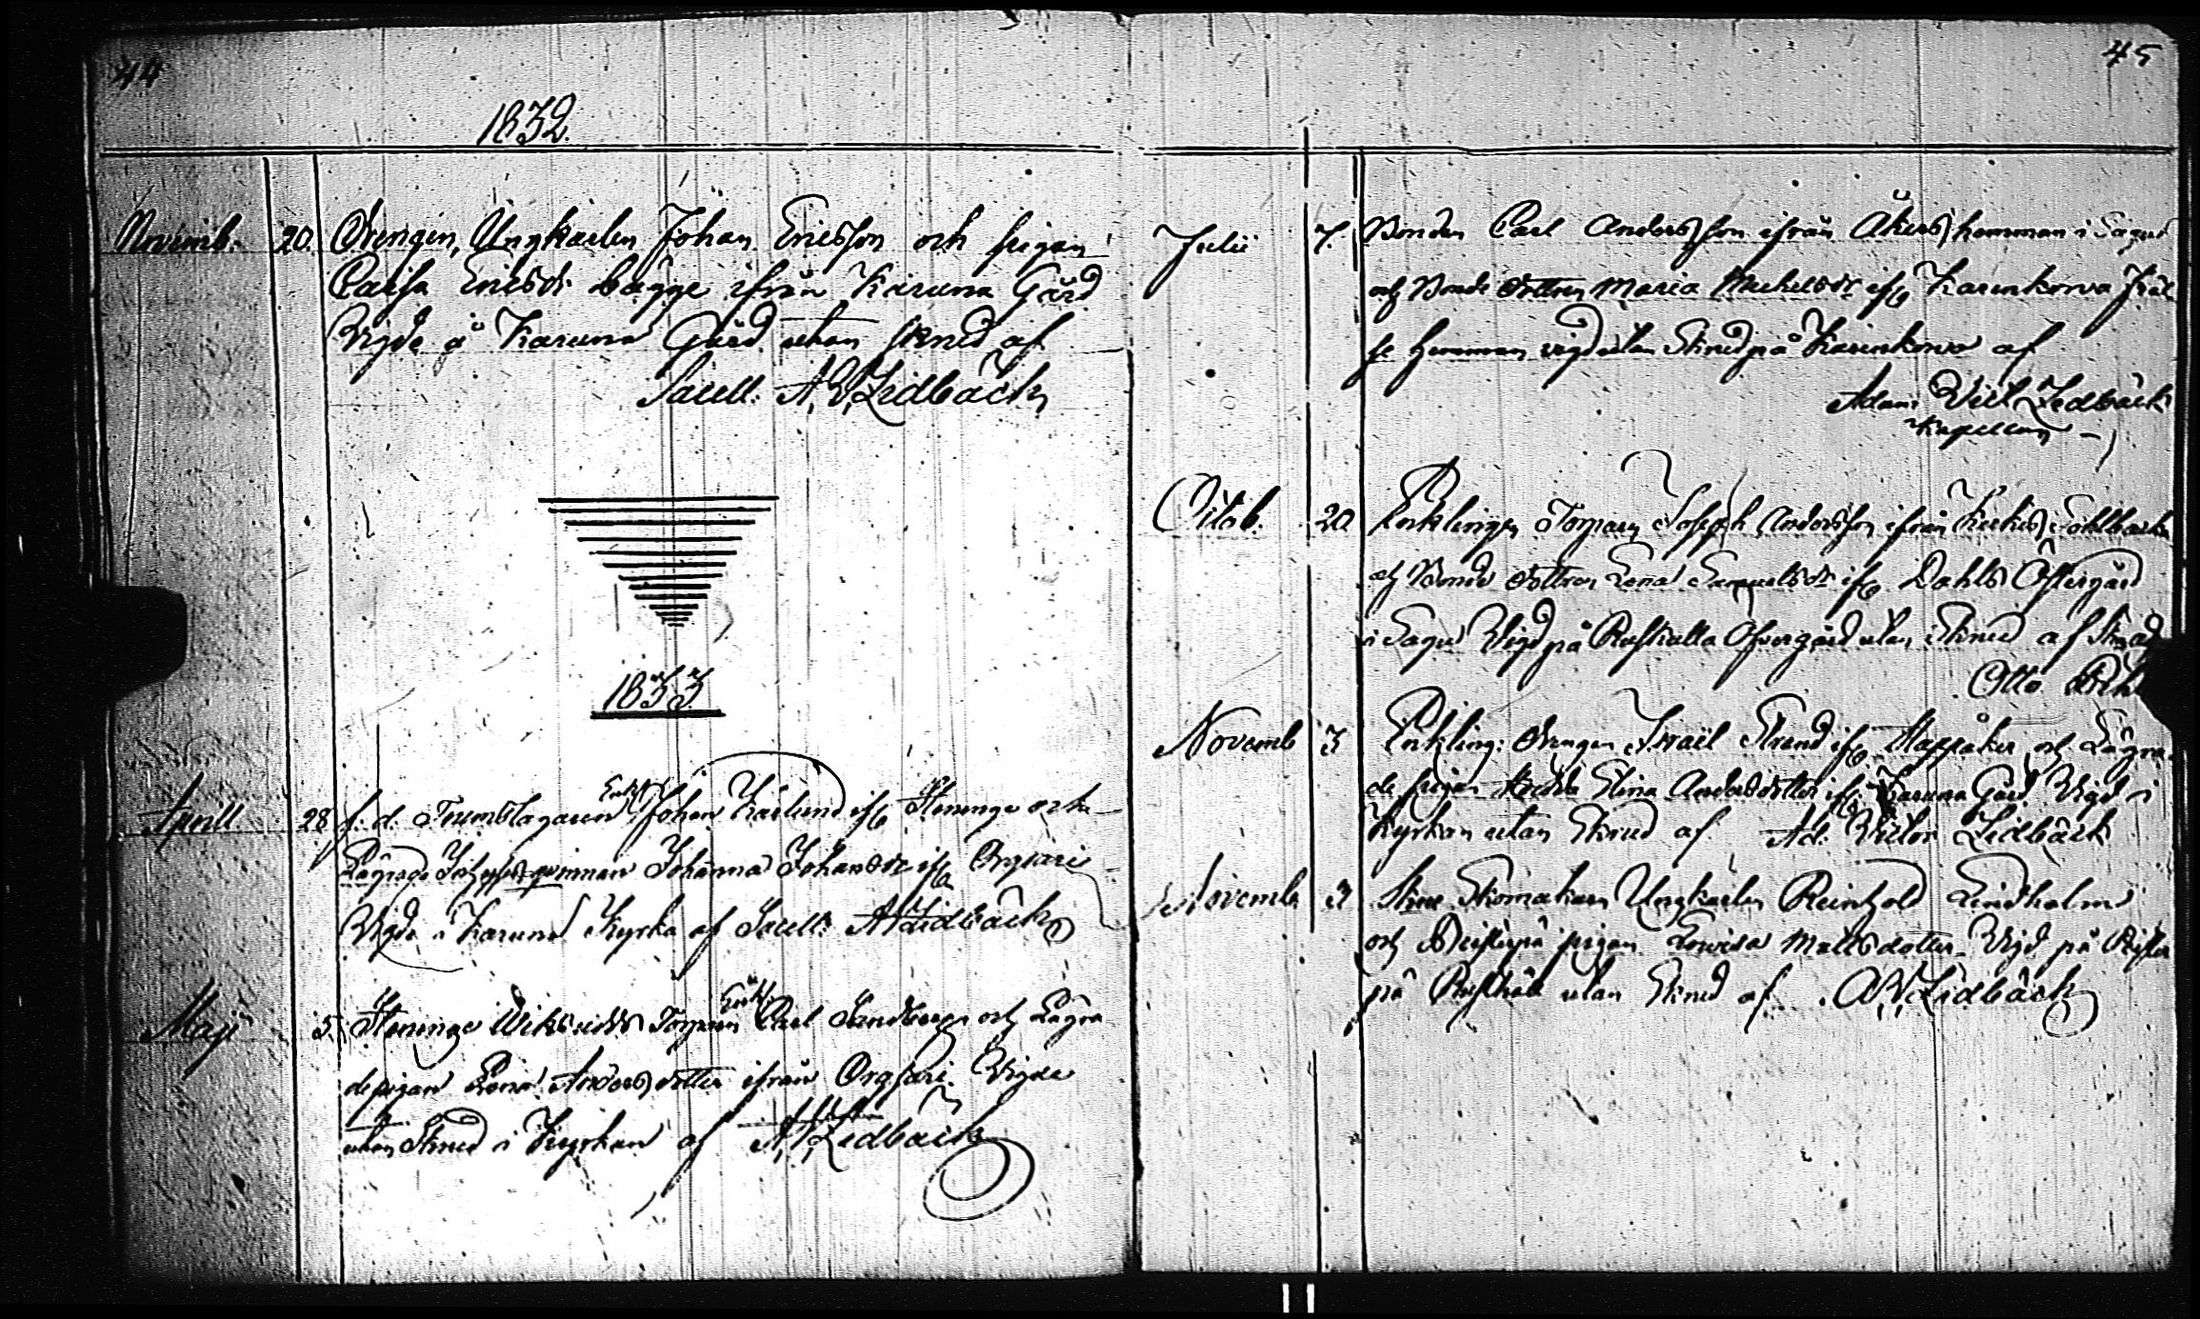 44
1832.
Novemb. 20. Drengen, Ungkarlen Johan Ericsson och pigan
Caisa Ericsdr bägge ifrån Karuna Gård
Vigde å Karuna Gård utan skrud af
Sacell: A. V. Lidbäck
1833.
Aprill 28 f. d. Trumslagaren Enkl. Johan Karlund ifr Steninge och
Lägrade qvinnan Johanna Johansdr ifr
Vigde i Karuna Kyrka af Sacell: A V Lidbäck
Maji 5. Steninge Torparen Enkl. Carl Sandberg och Lägra-
de pigan Lena Andersdotter ifrån Vigde
utan Skrud i Kyrkan af A. V. Lidbäck
45
Julii 7. Bonden Carl Andersson ifrån Åkers hemman i Sagu
och Bonde dottren Maria Michelsdr ifr Karunkorva Fräl
se hemman vigd utan Skrud på Karunkorva af
Adam Vict. Lidbäck
Kapellan
Octob. 20 Enklingen Torparen Joseph Andersson ifrån
och Bonde dottren Lena Samuelsdr ifr Dahls Östergård
i Sagu Vigd på Öfvergård utan Skrud af
Otto
Novemb 3 Enkling: Drengen Israël Strand ifr och Lägra-
de pigan Stina Andersdotter ifr Karuna Gård Vigd i
Kyrkan utan Skrud af Ad: Victor Lidbäck
Novemb 3 Skomakaren Ungkarlen Reinhold Lindholm
och pigan Lovisa Mattsdotter Vigd på
på utan Skrud af A V Lidbäck